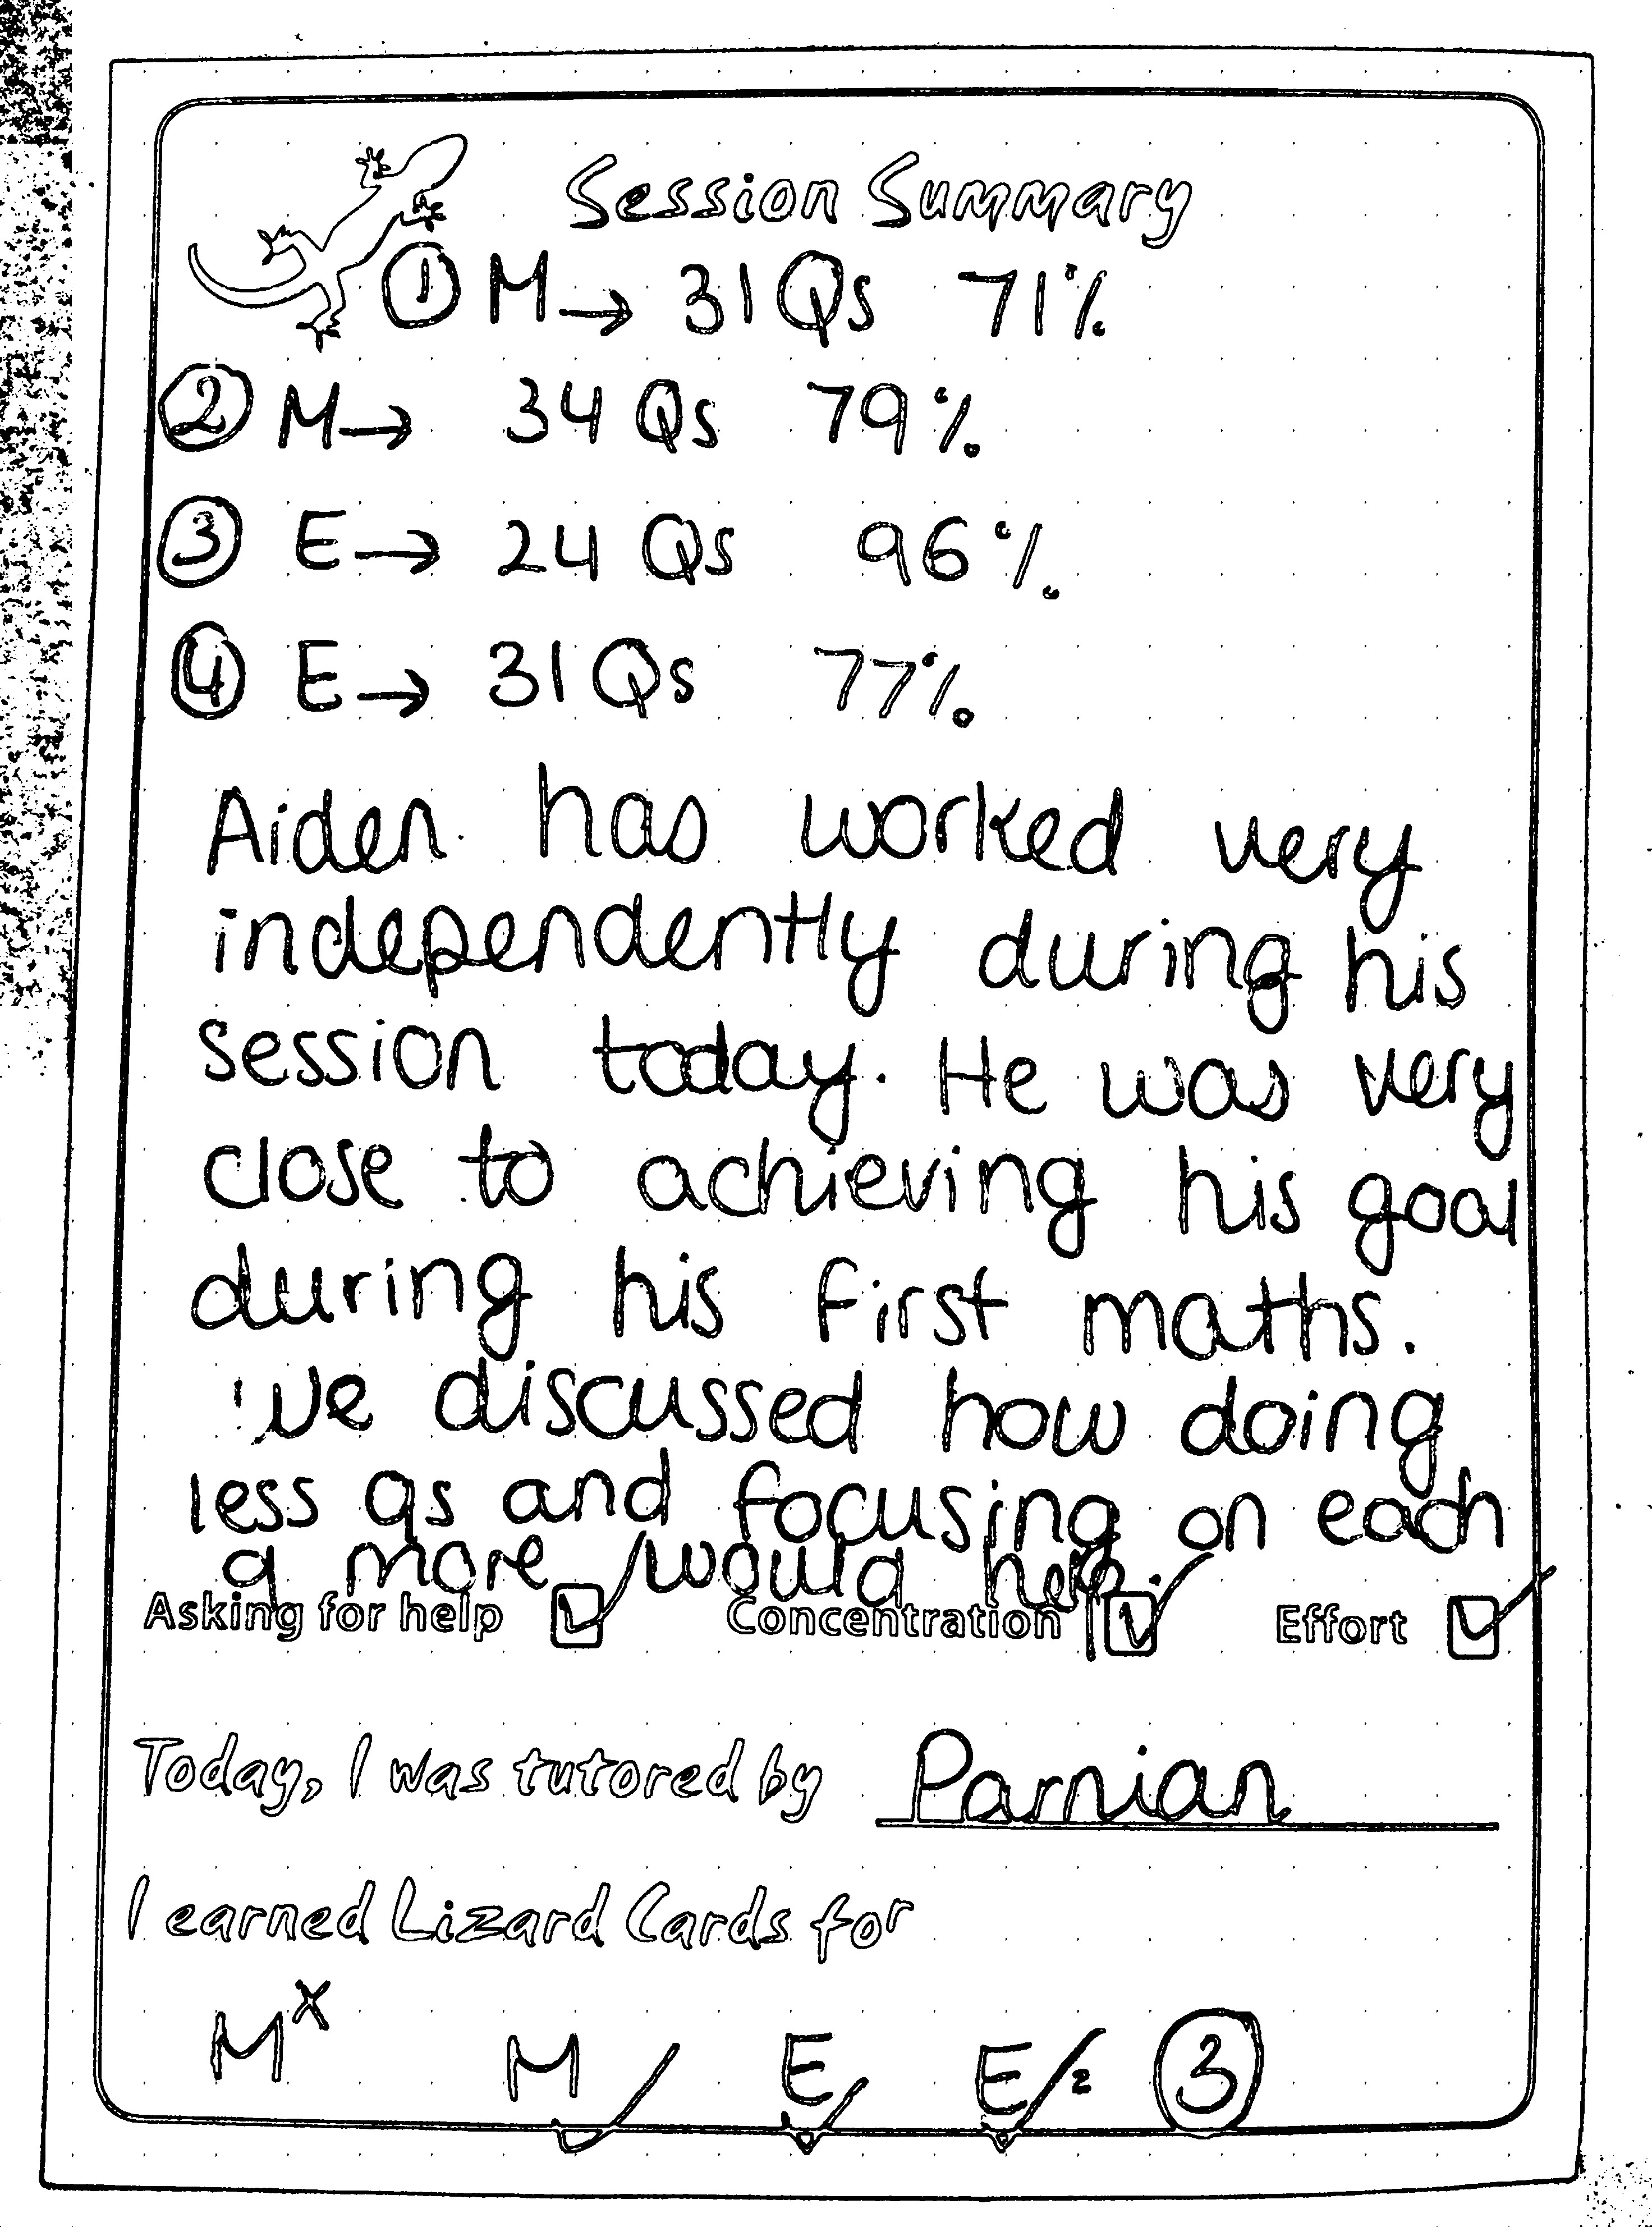 Session Summary
① M → 31 Qs 71%
② M → 34 Qs 79%
③ E → 24 Qs 96%
④ E → 31 Qs 77%
Aiden has worked very
independently during his
session today. He was very
close to achieving his goal
during his first maths.
We discussed how doing
less qs and focusing on each
q more would help.
Asking for help ☑ Concentration ☑ Effort ☑
Today, I was tutored by Parnian
I earned Lizard Cards for
M x M ✓ E ✓ E ✓ = ③